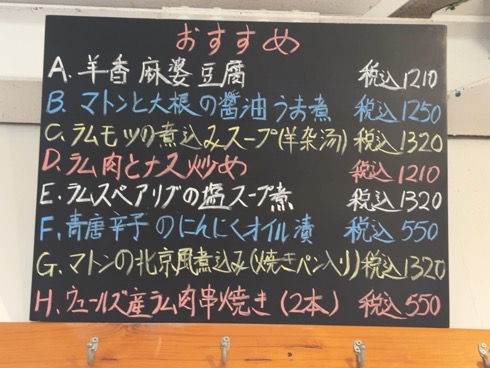 おすすめ
A. 羊香麻婆豆腐 税込1210
B. マトンと大根の醤油うま煮 税込1250
C. ラムモツの煮込みスープ(羊杂汤) 税込1320
D. ラム肉とナス炒め 税込1210
E. ラムスペアリブの塩スープ煮 税込1320
F. 青唐辛子のにんにくオイル漬 税込550
G. マトンの北京風煮込み(焼きパン入り) 税込1320
H. ウェールズ産ラム肉串焼き(2本) 税込550